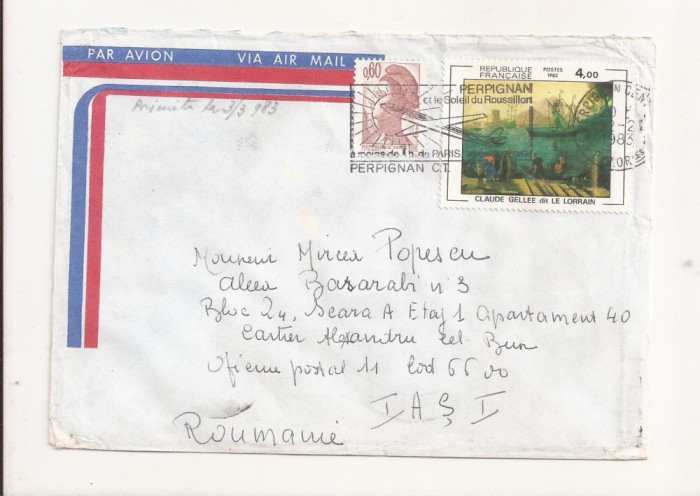 PAR AVION VIA AIR MAIL
le 3/3 983
0,60
RÉPUBLIQUE FRANÇAISE
REPUBLIQUE FRANÇAISE
POSTES 1982
4,00
CLAUDE GELLEE dit LE LORRAIN
PERPIGNAN
et le Soleil du Roussillon
à moins de 1h. de PARIS
PERPIGNAN C.T.
Monsieur Mircea Popescu
aleea Basarabi n° 3
Bloc 24, Scara A Etaj 1 apartament 40
Cartier Alexandru cel Bun
Oficiu postal 11 Cod 6600
IAȘI
Roumanie